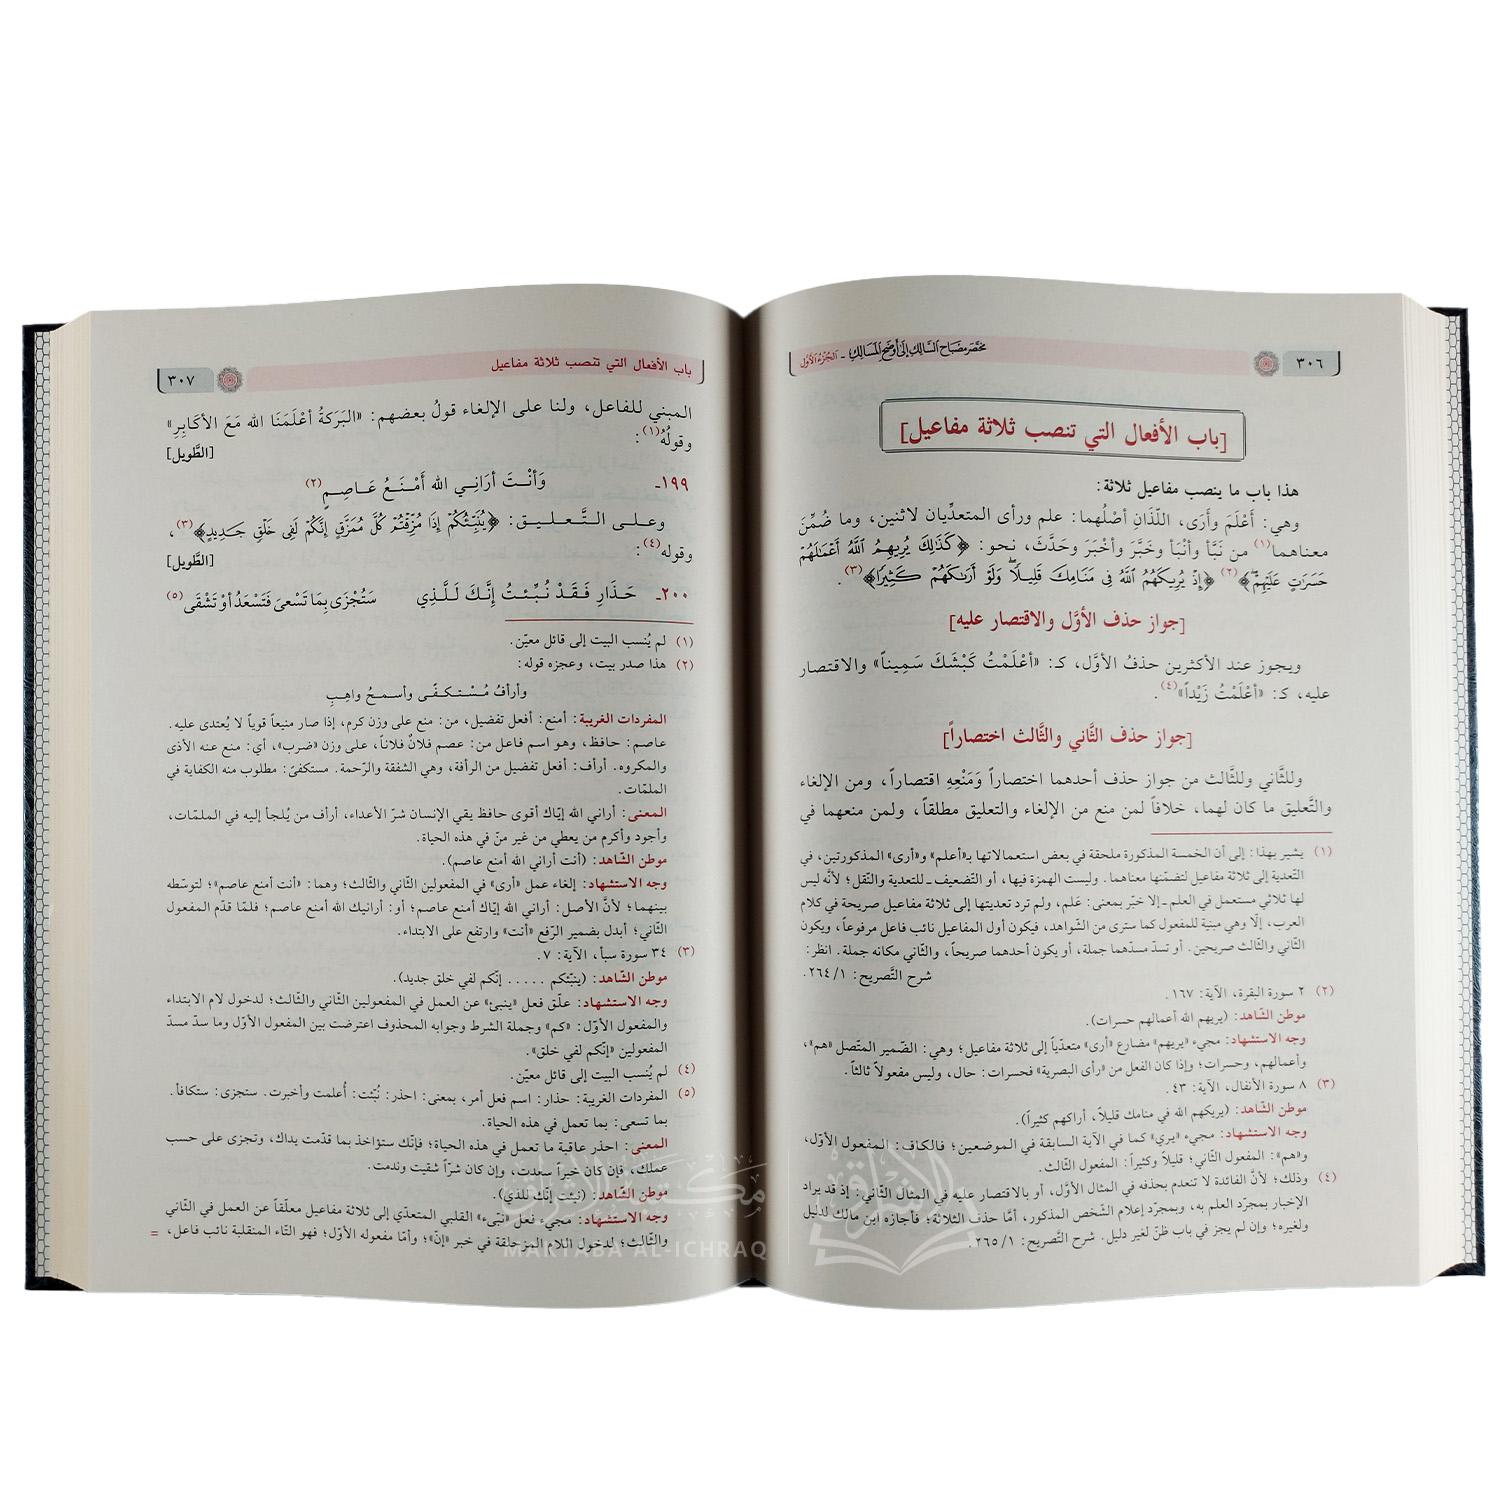 ٣٠٦
مختصر مصباح السالك إلى أوضح المسالك - الجزء الأول
[باب الأفعال التي تنصب ثلاثة مفاعيل]
هذا باب ما ينصب مفاعيل ثلاثة:
وهي: أَعْلَمَ وأَرَى، اللّذَانِ أصْلُهما: علم ورأى المتعدِّيان لاثنين، وما ضُمِّنَ
معناهما(١) من نَبَّأ وأنْبَأ وخَبَّرَ وأخْبَرَ وحَدَّثَ، نحو: ﴿كَذَٰلِكَ يُرِيهِمُ ٱللَّهُ أَعْمَـٰلَهُمْ
حَسَرَٰتٍ عَلَيْهِمْ﴾(٢) ﴿إِذْ يُرِيكَهُمُ ٱللَّهُ فِى مَنَامِكَ قَلِيلًا وَلَوْ أَرَىٰكَهُمْ كَثِيرًا﴾(٣).
[جواز حذف الأوَّل والاقتصار عليه]
ويجوز عند الأكثرين حذفُ الأوَّل، كـ: «أعْلَمْتُ كَبْشَكَ سَمِيناً» والاقتصار
عليه، كـ: «أعْلَمْتُ زَيْداً»(٤).
[جواز حذف الثَّاني والثَّالث اختصاراً]
وللثَّاني وللثَّالث من جواز حذف أحدهما اختصاراً وَمَنْعِهِ اقتصاراً، ومن الإلغاء
والتَّعليق ما كان لهما، خلافاً لمن منع من الإلغاء والتعليق مطلقاً، ولمن منعهما في
(١) يشير بهذا: إلى أن الخمسة المذكورة ملحقة في بعض استعمالاتها بـ«أعلم» و«أرى» المذكورتين، في
التعدية إلى ثلاثة مفاعيل لتضمّنها معناهما. وليست الهمزة فيها، أو التّضعيف ـ للتعدية والنّقل؛ لأنّه ليس
لها ثلاثي مستعمل في العلم ـ إلا خبّر بمعنى: عَلم، ولم ترد تعديتها إلى ثلاثة مفاعيل صريحة في كلام
العرب، إلّا وهي مبنية للمفعول كما سترى من الشّواهد، فيكون أول المفاعيل نائب فاعل مرفوعاً، ويكون
الثّاني والثّالث صريحين. أو تسدّ مسدّهما جملة، أو يكون أحدهما صريحاً، والثّاني مكانه جملة. انظر:
شرح التّصريح: ١/ ٢٦٤.
(٢) ٢ سورة البقرة، الآية: ١٦٧.
موطن الشّاهد: (يريهم الله أعمالهم حسرات).
وجه الاستشهاد: مجيء «يريهم» مضارع «أرى» متعدّياً إلى ثلاثة مفاعيل؛ وهي: الضّمير المتّصل «هم»،
وأعمالهم، وحسرات؛ وإذا كان الفعل من «رأى البصرية» فحسرات: حال، وليس مفعولاً ثالثاً.
(٣) ٨ سورة الأنفال، الآية: ٤٣.
موطن الشّاهد: (يريكهم الله في منامك قليلاً، أراكهم كثيراً).
وجه الاستشهاد: مجيء «يري» كما في الآية السابقة في الموضعين؛ فالكاف: المفعول الأوّل،
و«هم»: المفعول الثّاني؛ قليلاً وكثيراً: المفعول الثّالث.
(٤) وذلك؛ لأنّ الفائدة لا تنعدم بحذفه في المثال الأوّل، أو بالاقتصار عليه في المثال الثّاني: إذ قد يراد
الإخبار بمجرّد العلم به، وبمجرّد إعلام الشّخص المذكور، أمّا حذف الثلاثة؛ فأجازه ابن مالك لدليل
ولغيره؛ وإن لم يجز في باب ظنّ لغير دليل. شرح التّصريح: ١/ ٢٦٥.
باب الأفعال التي تنصب ثلاثة مفاعيل
٣٠٧
المبني للفاعل، ولنا على الإلغاء قولُ بعضهم: «البَرَكةُ أعْلَمَنَا الله مَعَ الأكَابِرِ»
وقولُهُ(١): [الطَّويل]
١٩٩ـ وَأنْتَ أرَانِي الله أَمْنَعُ عَاصِمٍ(٢)
وعلى التَّعليق: ﴿يُنَبِّئُكُمْ إِذَا مُزِّقْتُمْ كُلَّ مُمَزَّقٍ إِنَّكُمْ لَفِى خَلْقٍ جَدِيدٍ﴾(٣)،
وقوله(٤): [الطَّويل]
٢٠٠ـ حَذَارِ فَقَدْ نُبِّئتُ إِنَّكَ لَلَّذِي سَتُجْزَى بِمَا تَسْعى فَتَسْعَدُ أوْ تَشْقَى(٥)
(١) لم يُنسب البيت إلى قائل معيّن.
(٢) هذا صدر بيت، وعجزه قوله:
وأرأفُ مُسْتكفًى وأسمحُ واهِبِ
المفردات الغريبة: أمنع: أفعل تفضيل، من: منع على وزن كرم، إذا صار منيعاً قوياً لا يُعتدى عليه.
عاصم: حافظ، وهو اسم فاعل من: عصم فلانٌ فلاناً، على وزن «ضرب»، أي: منع عنه الأذى
والمكروه. أرأف: أفعل تفضيل من الرأفة، وهي الشفقة والرّحمة. مستكفىً: مطلوب منه الكفاية في
الملمّات.
المعنى: أراني الله إيّاك أقوى حافظ يقي الإنسان شرّ الأعداء، أرأف من يُلجأ إليه في الملمّات،
وأجود وأكرم من يعطي من غير منّ في هذه الحياة.
موطن الشّاهد: (أنت أراني الله أمنع عاصم).
وجه الاستشهاد: إلغاء عمل «أرى» في المفعولين الثّاني والثّالث؛ وهما: «أنت أمنع عاصم»؛ لتوسّطه
بينهما؛ لأنّ الأصل: أراني الله إيّاك أمنع عاصم؛ أو: أرانيك الله أمنع عاصم؛ فلمّا قدّم المفعول
الثّاني؛ أبدل بضمير الرّفع «أنت» وارتفع على الابتداء.
(٣) ٣٤ سورة سبأ، الآية: ٧.
موطن الشّاهد: (ينبّئكم ..... إنّكم لفي خلق جديد).
وجه الاستشهاد: علّق فعل «ينبئ» عن العمل في المفعولين الثّاني والثّالث؛ لدخول لام الابتداء
والمفعول الأوّل: «كم» وجملة الشرط وجوابه المحذوف اعترضت بين المفعول الأوّل وما سدّ مسدّ
المفعولين «إنّكم لفي خلق».
(٤) لم يُنسب البيت إلى قائل معيّن.
(٥) المفردات الغريبة: حذار: اسم فعل أمر، بمعنى: احذر: نُبّئت: أُعلمت وأخبرت. ستجزى: ستكافأ.
بما تسعى: بما تعمل في هذه الحياة.
المعنى: احذر عاقبة ما تعمل في هذه الحياة؛ فإنّك ستؤاخذ بما قدّمت يداك، وتجزى على حسب
عملك، فإن كان خيراً سعدت، وإن كان شرّاً شقيت وندمت.
موطن الشّاهد: (نبئت إنّك للذي).
وجه الاستشهاد: مجيء فعل «نبّىء» القلبي المتعدّي إلى ثلاثة مفاعيل معلّقاً عن العمل في الثّاني
والثّالث؛ لدخول اللام المزحلقة في خبر «إنّ»؛ وأمّا مفعوله الأوّل؛ فهو التّاء المنقلبة نائب فاعل، =
مكتبة الإشراق
MAKTABA AL-ICHRAQ
الإشراق